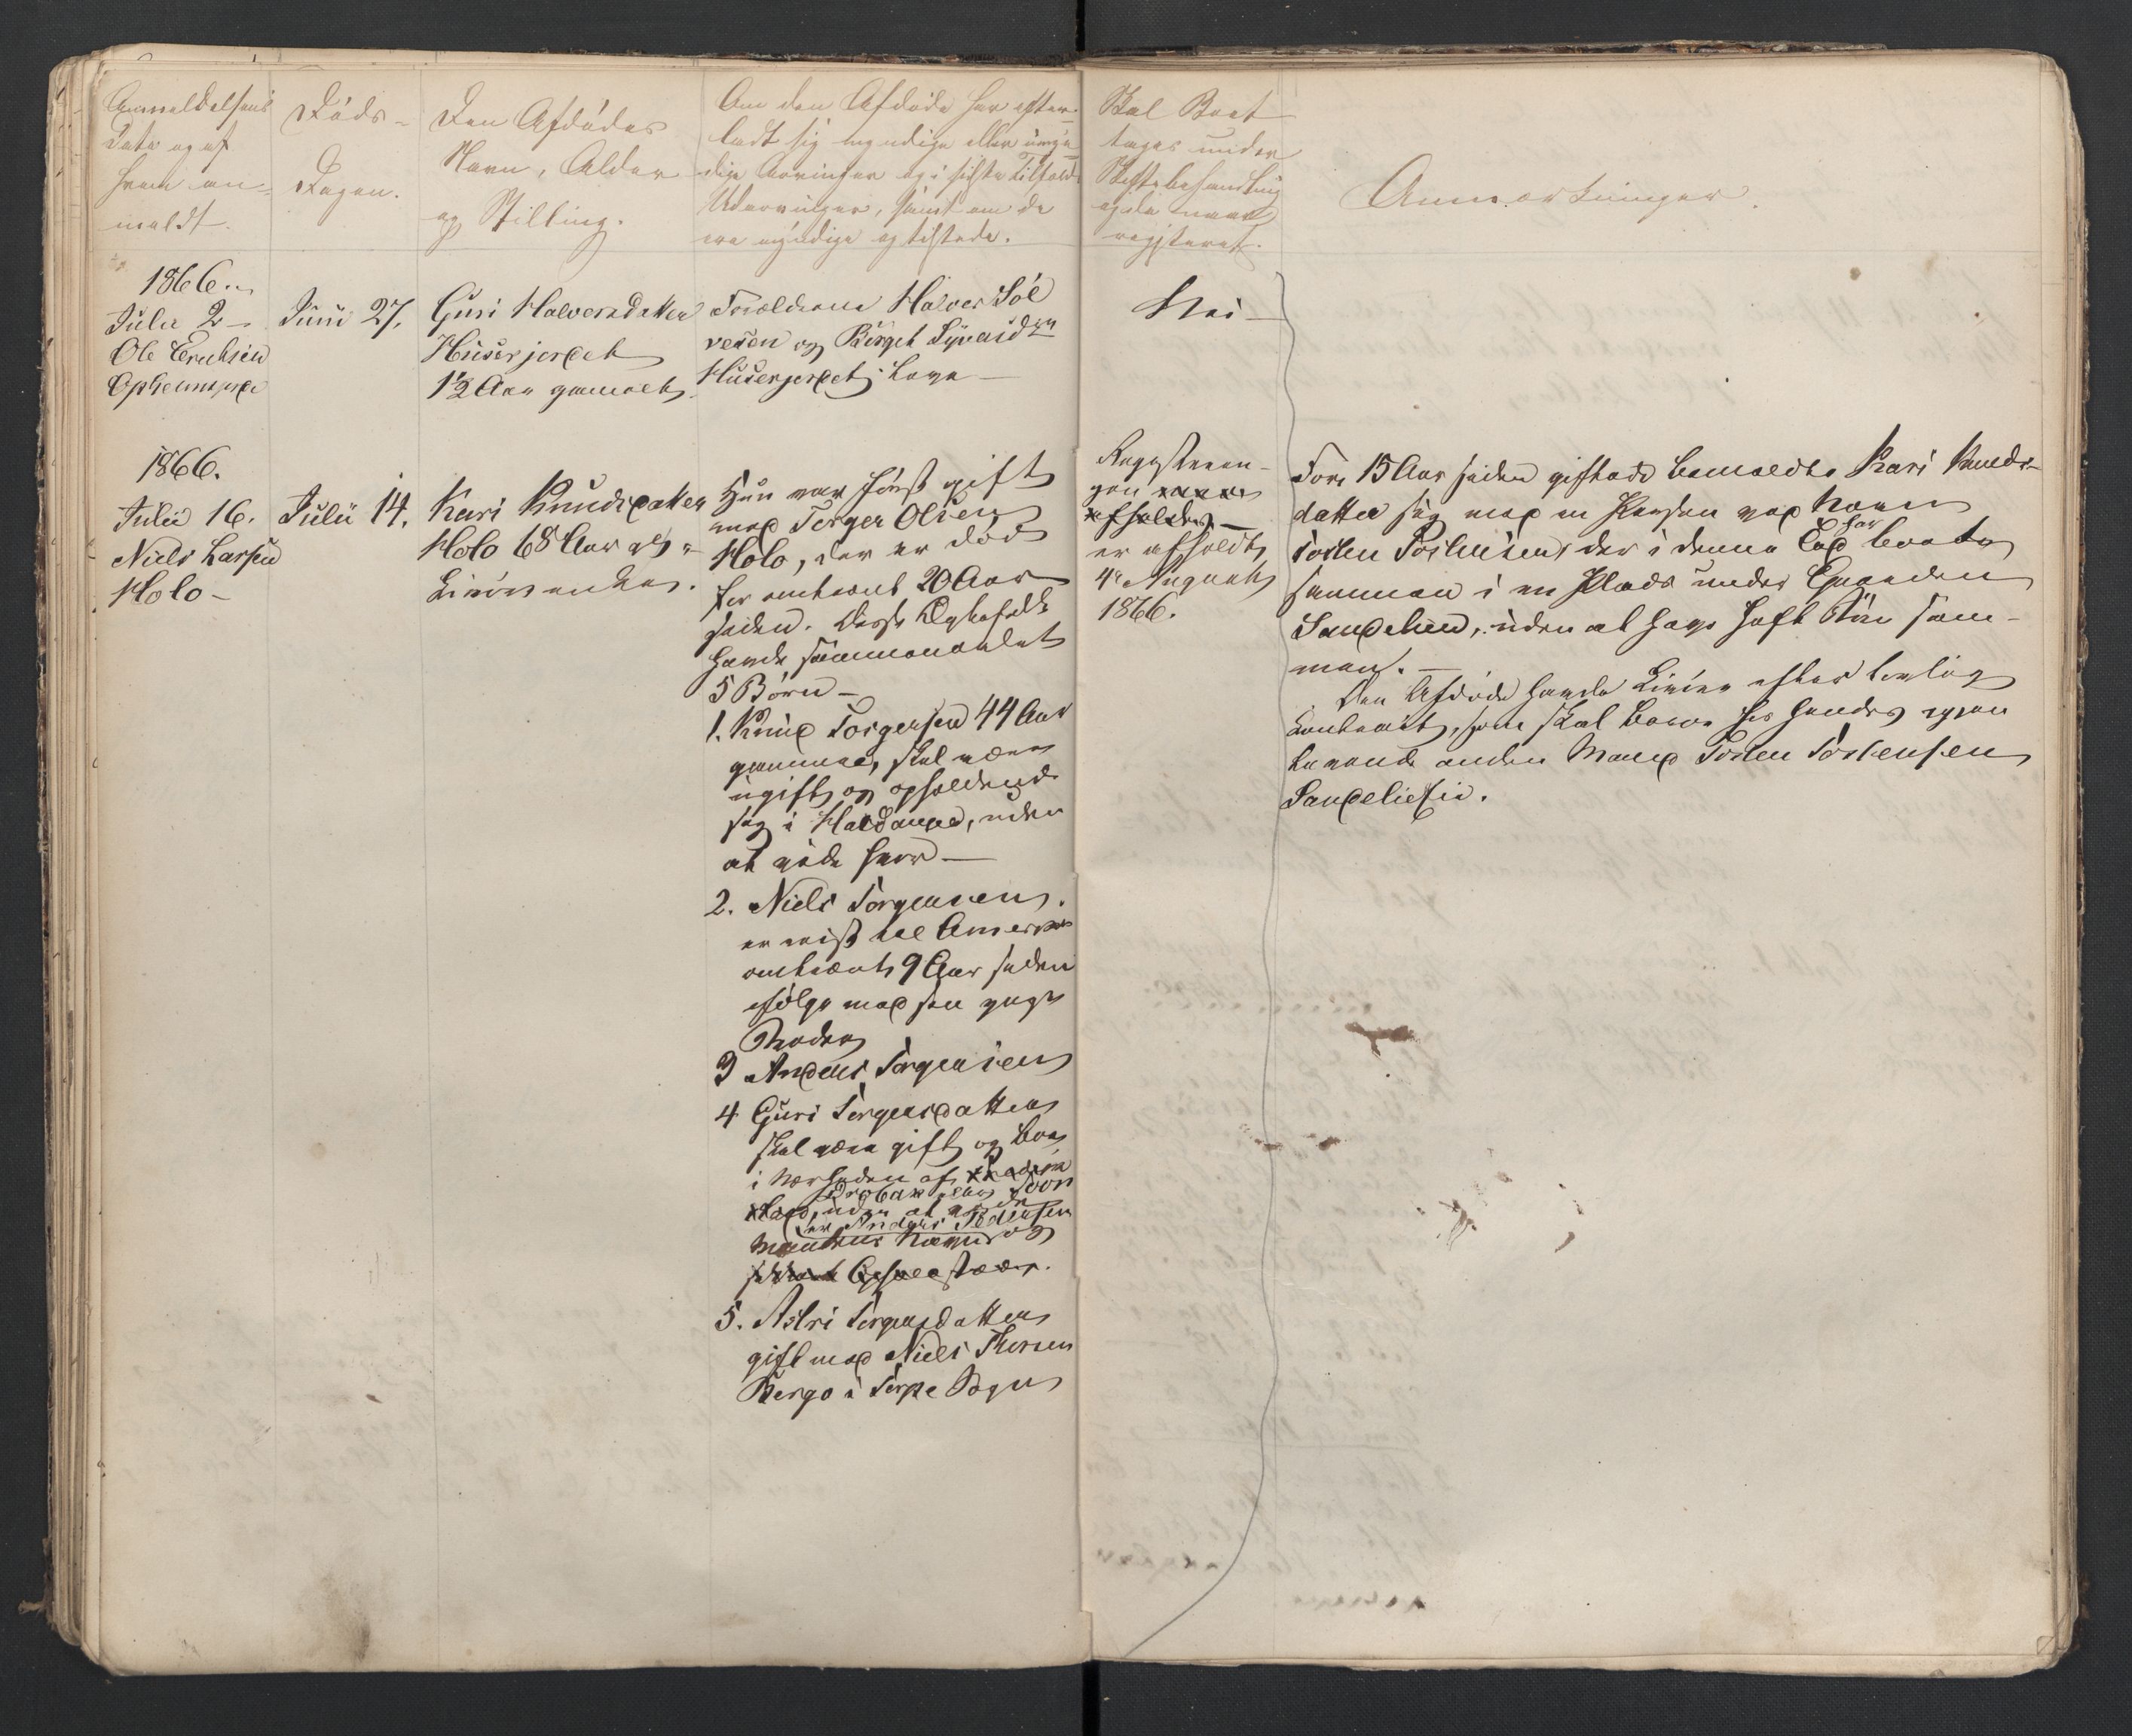 Anmeldelsens
Dato og af
hvem an-
meldt.
Døds-
Dagen.
Den Afdødes
Navn, Alder
og Stilling.
Om den Afdøde har efter-
ladt sig myndige eller umyn-
dige Arvinger og i sidste Tilfælde
Udarvinger, samt om de
ere myndige og tilstede.
Skal Boet
tages under
Skiftebehandling
og da naar
registeret.
Anmærkninger.
1866.
Julii 2 -
Ole Erichsen
Opheims
Juni 27.
Guri Halvorsdatter
Huserjordet
1/2 Aar gammelt
Forældrene Halvor Söl
vesen og Birget Syvers
Huserjordet i Live -
Nei -
1866.
Julii 16.
Niels Larsen
Holo -
Julii 14.
Kari Knudsdatter
Holo 68 Aar gl.
Hun var først gift
med Torger Olsen
Holo, der er død
for omtrent 20 Aar
siden. Disse Ægtefolk
havde sammenavlet
5 Børn -
1. Knud Torgersen 44 Aar
gammel, skal være
ugift og opholdende
sig i Haldanger, uden
at vide hvor -
2. Niels Torgersen.
er reist til Amerika
omtrent 9 Aar siden
ifølge med sin
3 Anders Torgersen
4 Guri Torgersdatter
skal være gift og boe
i Nærheden af
Drøbak eller Soon
uden at vide
er Anders Pedersen
Mandens Navn og
Opholdssted.
5. Astri Torgersdatter
gift med Niels Thorsen
Bergo i Torpe Sogn
Registrerin-
gen
afholdes -
er afholdt
4de August
1866.
For 15 Aar siden giftede bemeldte Kari Knuds-
datter sig med en Person ved Navn
Tosten Tostensen, der i denne Tid har boet
sammen i en Plads under Gaarden
Sandelien, uden at have havt Børn sam-
men. -
Den Afdøde havde Livøre efter
Contract, som skal bero hos hendes igjen
levende anden Mand Tosten Tostensen
Sandelieeie.